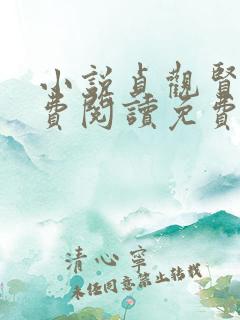 小說貞觀賢
費閱讀免費
清心寧
未經同意禁止轉載